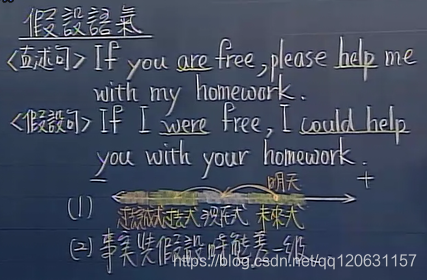 假設語氣
<直述句> If you are free, please help me
with my homework.
<假設句> If I were free, I could help
you with your homework.
− +
明天
(1) 過去式 現在式 未來式
(2) 事實與假設時態差一級
https://blog.csdn.net/qq120631157